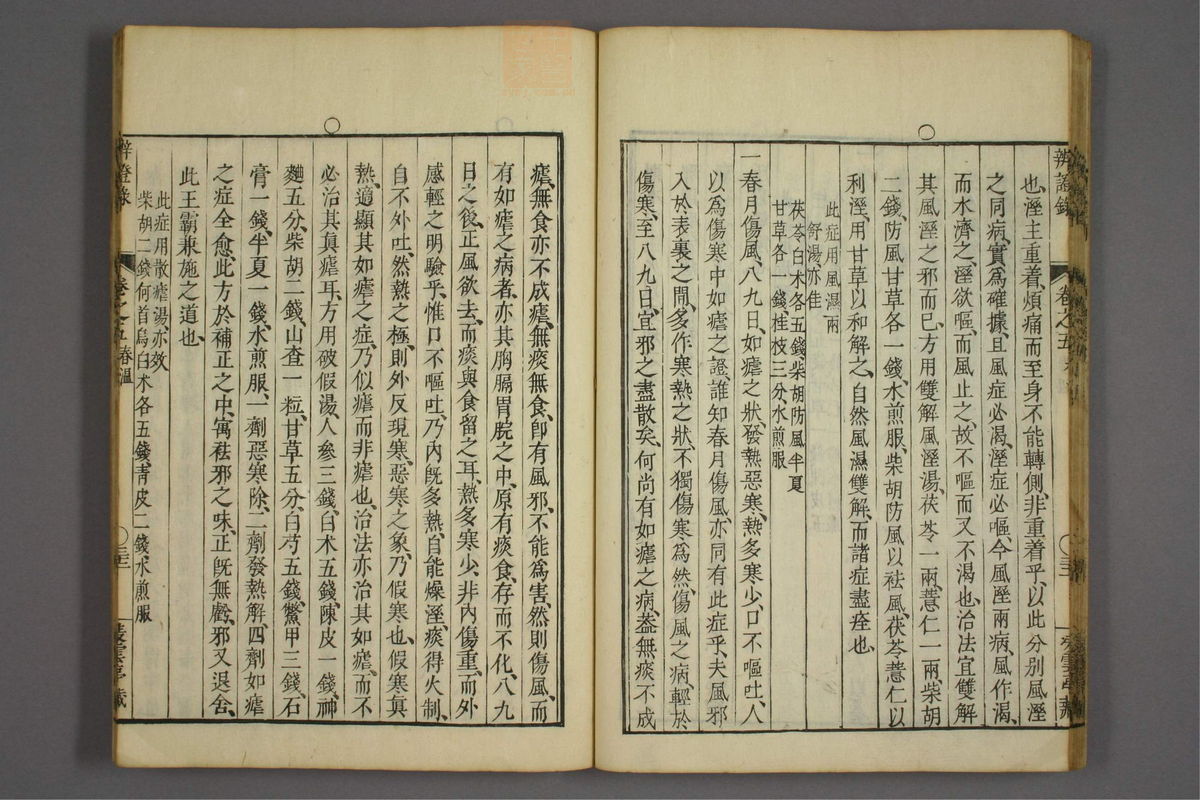 辨證錄 卷之五
也、溼主重着、煩痛而至身不能轉側、非重着乎、以此分別風溼
之同病、實爲確據、且風症必渴、溼症必嘔、今風溼兩病、風作渴、
而水濟之、溼欲嘔、而風止之、故不嘔而又不渴也、治法宜雙解
其風溼之邪而巳、方用雙解風溼湯、茯苓一兩、薏仁一兩、柴胡
二錢、防風甘草各一錢、水煎服、柴胡防風以袪風、茯苓薏仁以
利溼、用甘草以和解之、自然風濕雙解、而諸症盡痊也、
此症用風濕兩
舒湯亦佳
茯苓白术各五錢、柴胡防風半夏
甘草各一錢、桂枝三分、水煎服
一春月傷風、八九日、如瘧之狀、發熱惡寒、熱多寒少、口不嘔吐、人
以爲傷寒中如瘧之證、誰知春月傷風、亦同有此症乎、夫風邪
入於表裏之間、多作寒熱之狀、不獨傷寒爲然、傷風之病、輕於
傷寒、至八九日、宜邪之盡散矣、何尚有如瘧之病、葢無痰不成
瘧、無食亦不成瘧、無痰無食、卽有風邪、不能爲害、然則傷風、而
有如瘧之病者、亦其胸膈胃脘之中、原有痰食、存而不化、八九
日之後、正風欲去、而痰與食留之耳、熱多寒少、非內傷重、而外
感輕之明驗乎、惟口不嘔吐、乃內旣多熱、自能燥溼、痰得火制、
自不外吐、然熱之極、則外反現寒、惡寒之象、乃假寒也、假寒眞
熱、適顯其如瘧之症、乃似瘧而非瘧也、治法亦治其如瘧、而不
必治其眞瘧耳、方用破假湯、人參三錢、白术五錢、陳皮一錢、神
麯五分、柴胡二錢、山查一粒、甘草五分、白芍五錢、鱉甲三錢、石
膏一錢、半夏一錢、水煎服、一劑惡寒除、二劑發熱解、四劑如瘧
之症全愈、此方於補正之中、寓袪邪之味、正旣無虧、邪又退舍、
此王霸兼施之道也、
此症用散瘧湯、亦效
柴胡二錢、何首烏白术各五錢、靑皮二錢、水煎服
辨證錄 卷之五 春溫